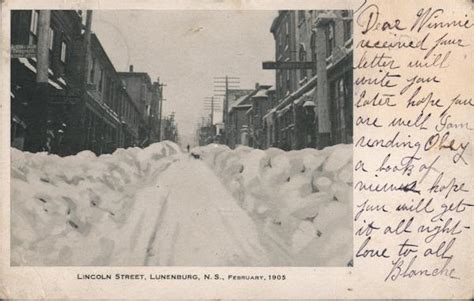 Dear Winnie
received your
letter will
write you
later hope you
are well I am
sending Obey
a book of
views hope
you will get
it all right-
love to all
Blanche
LINCOLN STREET, LUNENBURG, N. S., FEBRUARY, 1905